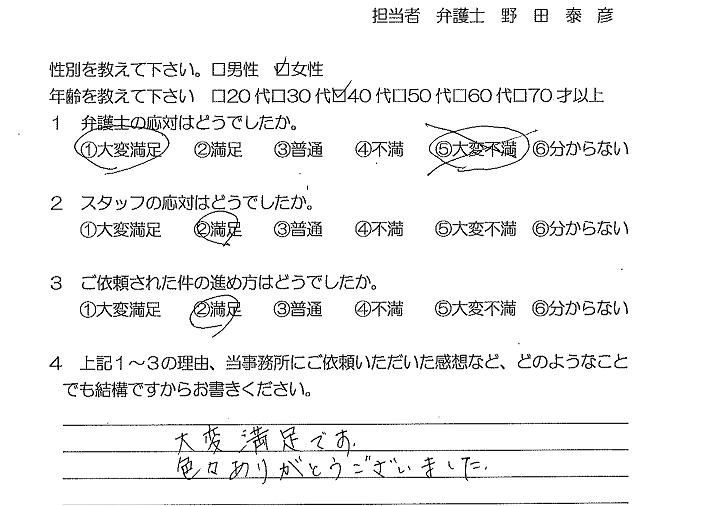 担当者　弁護士　野　田　泰　彦
性別を教えて下さい。□男性　☑女性
年齢を教えて下さい　□20代□30代☑40代□50代□60代□70才以上
1　弁護士の応対はどうでしたか。
①大変満足　②満足　③普通　④不満　⑤大変不満　⑥分からない
2　スタッフの応対はどうでしたか。
①大変満足　②満足　③普通　④不満　⑤大変不満　⑥分からない
3　ご依頼された件の進め方はどうでしたか。
①大変満足　②満足　③普通　④不満　⑤大変不満　⑥分からない
4　上記1～3の理由、当事務所にご依頼いただいた感想など、どのようなこと
でも結構ですからお書きください。
大変満足です。
色々ありがとうございました。